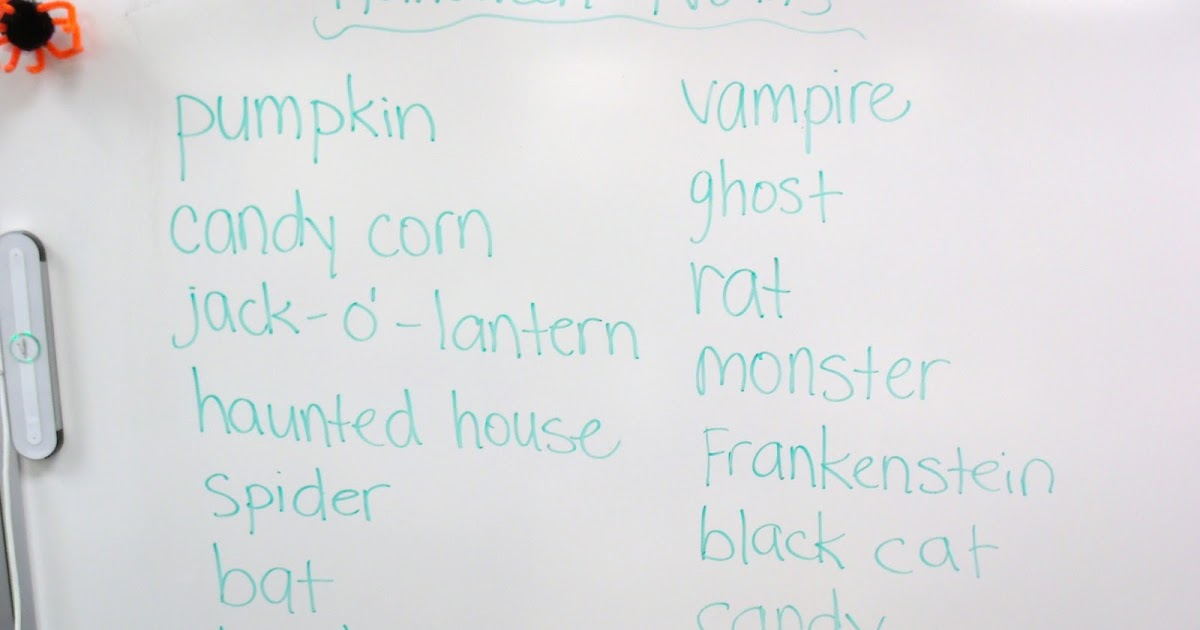 Halloween Nouns
pumpkin
candy corn
jack-o'-lantern
haunted house
spider
bat
vampire
ghost
rat
monster
Frankenstein
black cat
candy